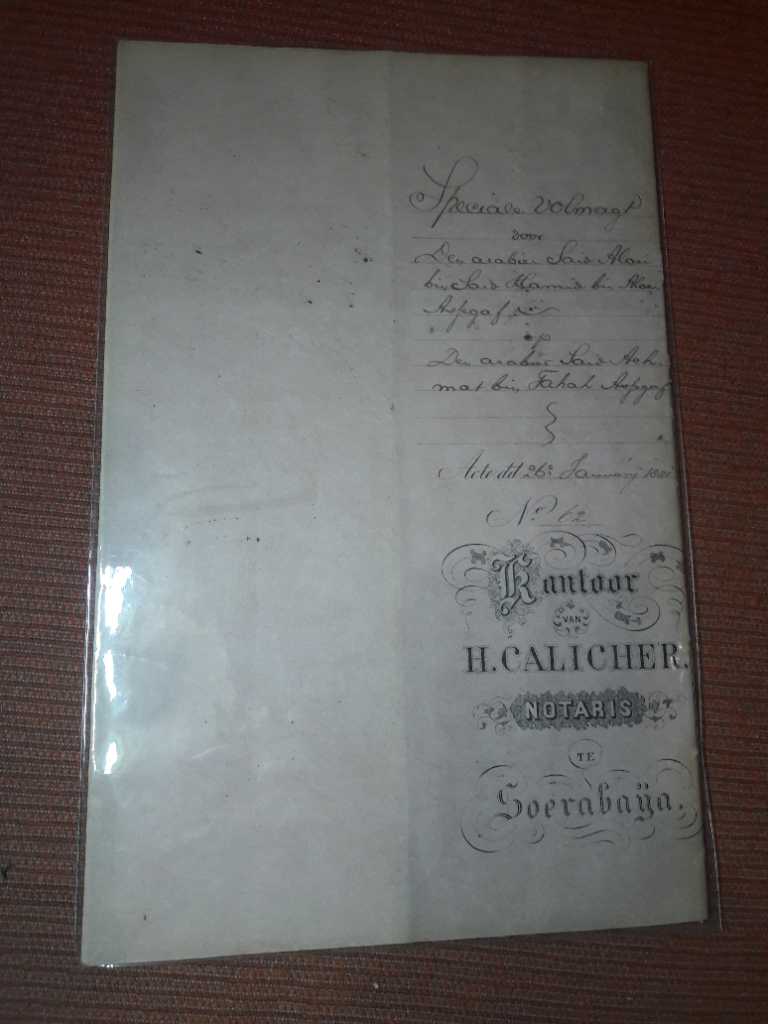 Speciale volmagt
door
Den arabier Said Aloui
bin Said Hamid bin Aloui
Aspgaf
op
Den arabier Said Ach-
mat bin Tahah Aspgaf
Acte dd 26e January
No 62
Kantoor
VAN
H. CALICHER.
NOTARIS
TE
Soerabaÿa.